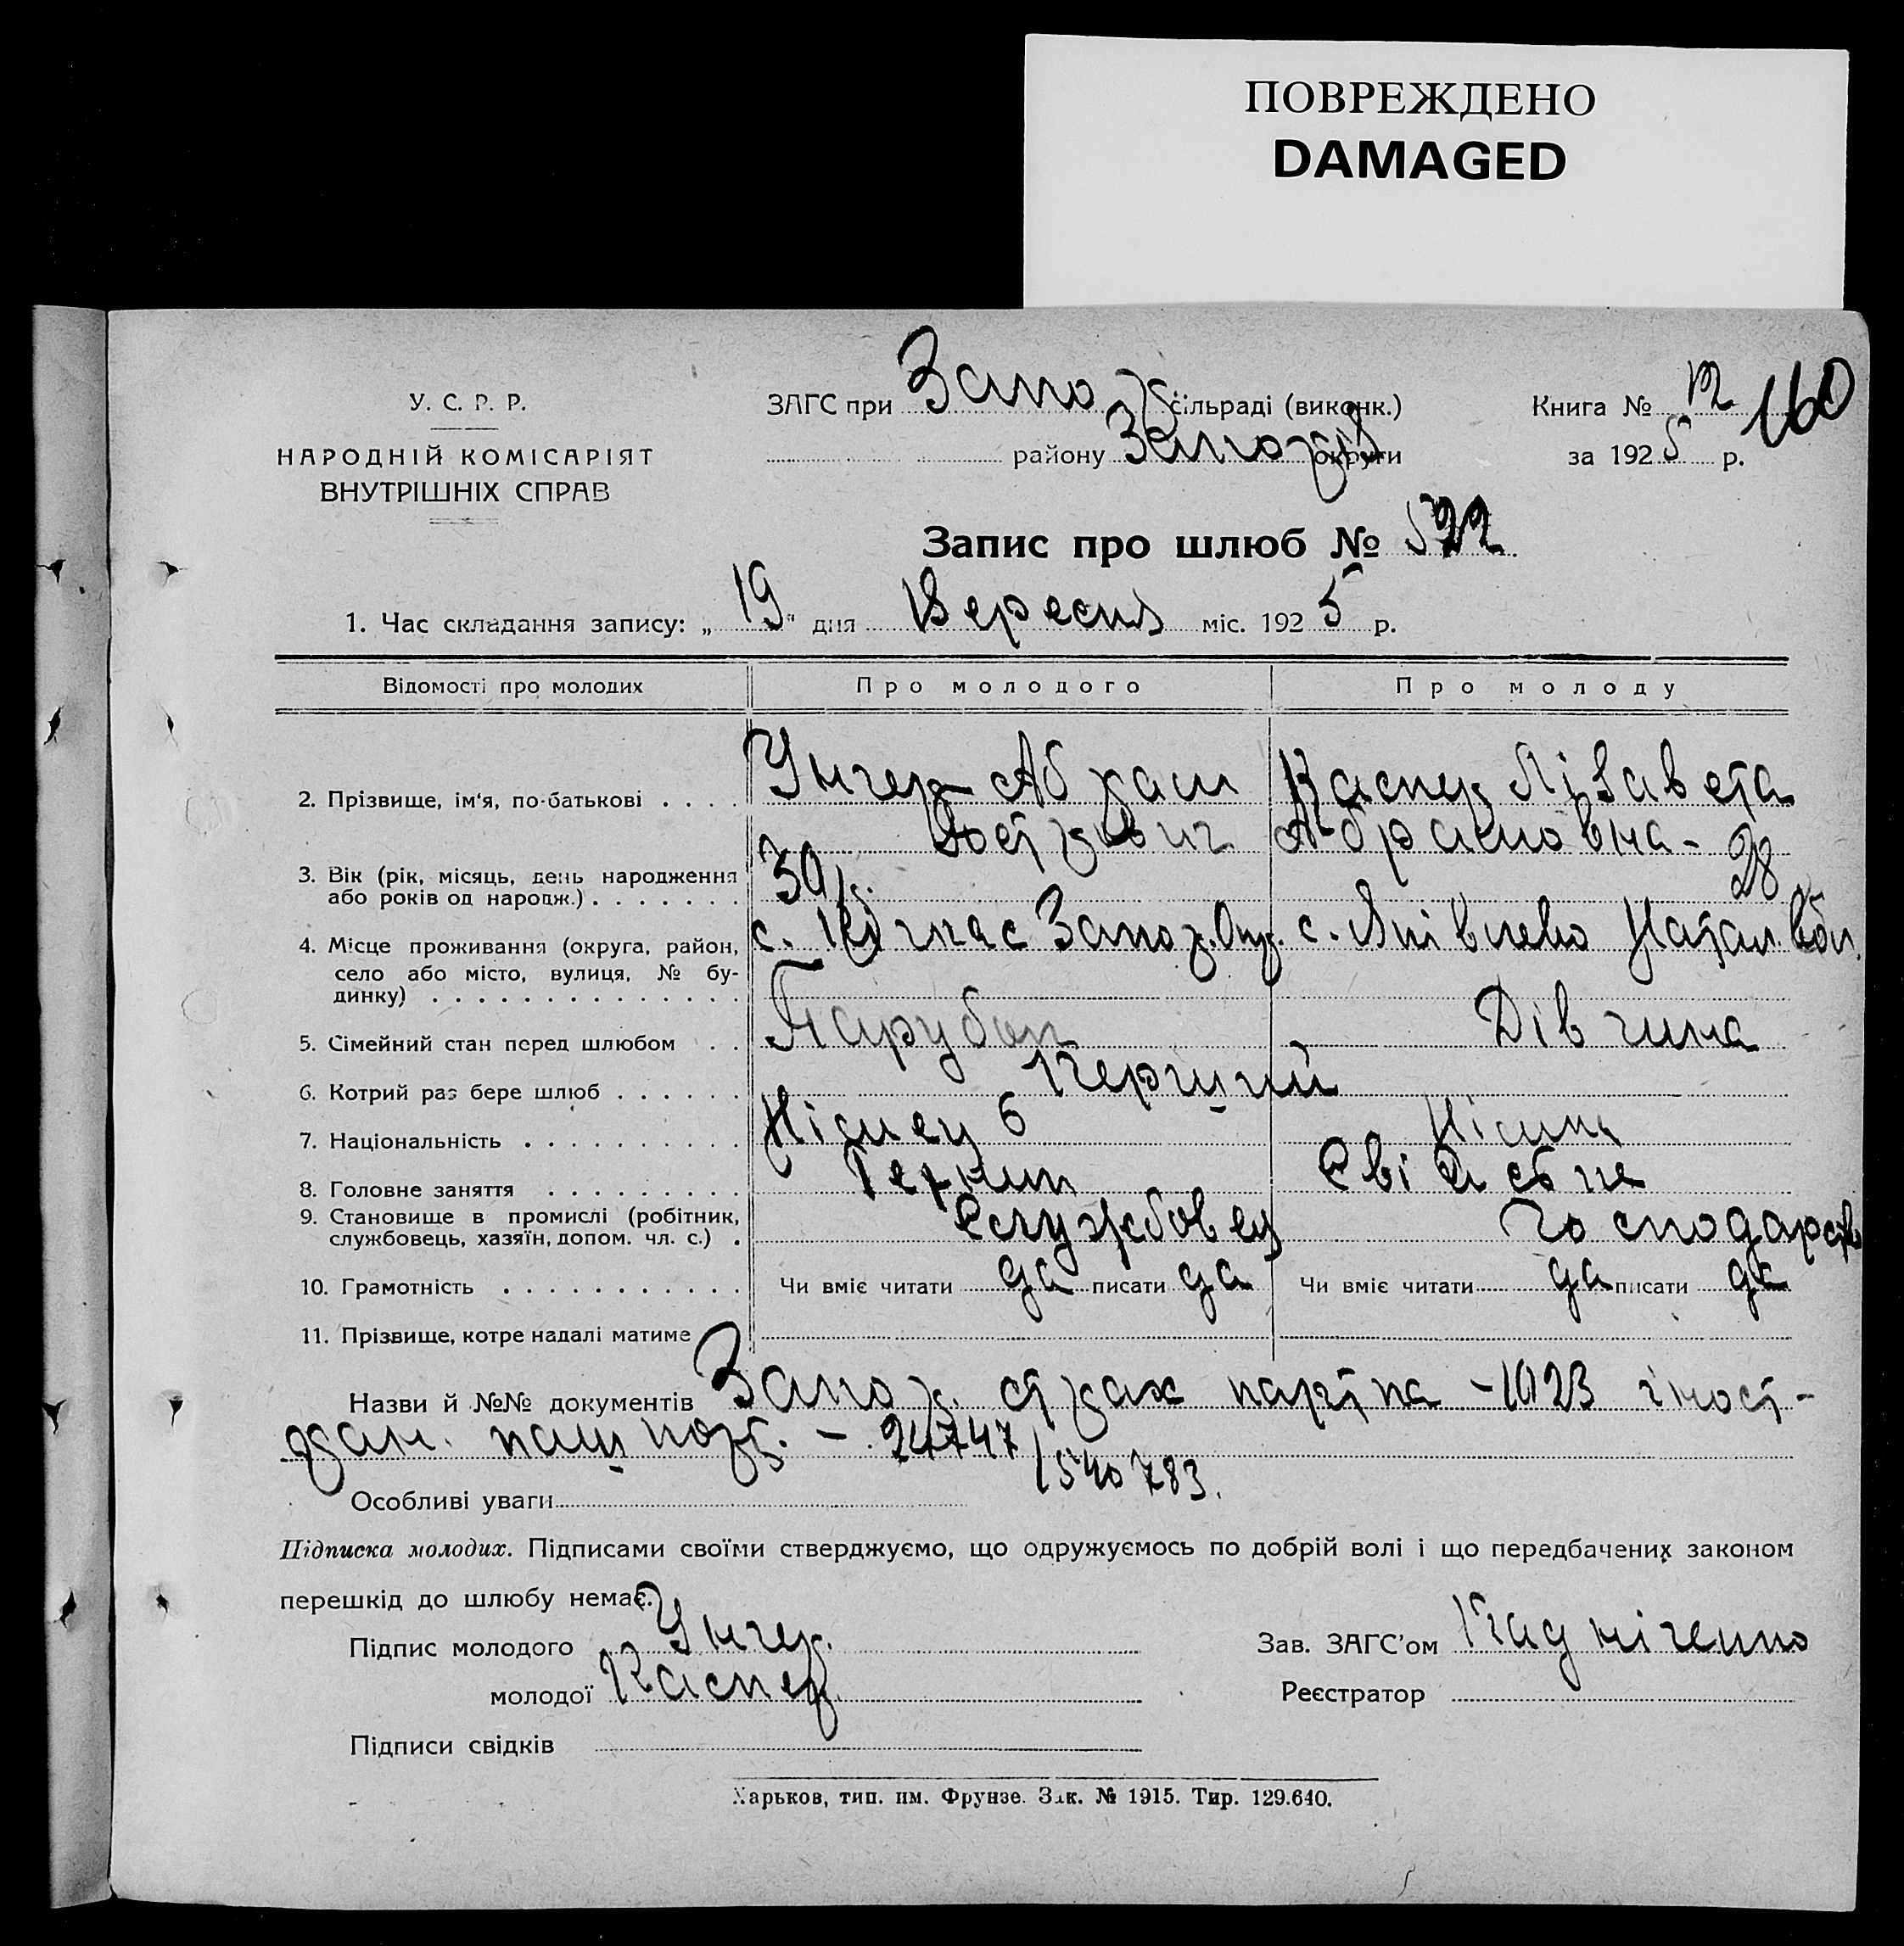 ПОВРЕЖДЕНО
DAMAGED
У. С. Р. Р.
НАРОДНІЙ КОМІСАРІЯТ
ВНУТРІШНІХ СПРАВ
ЗАГС при Запож сільраді (виконк.)
району Запоріз округи
Книга № 12 160
за 1925 р.
Запис про шлюб № 522
1. Час складання запису: „19" дня Вересня міс. 1925 р.
Відомості про молодих Про молодого Про молоду
2. Прізвище, ім'я, по-батькові . . . . Унгер Абрам Каспер Лізавета
Абрамовна - 28
3. Вік (рік, місяць, день народження 30 р.
або років од народж.) . . . . . . .
4. Місце проживання (округа, район, с. Запоз. Окр. с.
село або місто, вулиця, № бу-
динку) . . . . . . . . . . . . . .
5. Сімейний стан перед шлюбом . . Парубок Дівчина
6. Котрий раз бере шлюб . . . . . . Перший
7. Національність . . . . . . . . . . Німець Німка
8. Головне заняття . . . . . . . . . Технік
9. Становище в промислі (робітник, Службовец Господарств
службовець, хазяїн, допом. чл. с.) .
10. Грамотність . . . . . . . . . . . Чи вміє читати да писати да Чи вміє читати да писати да
11. Прізвище, котре надалі матиме
Назви й №№ документів Запоз. страх картка - 1023 іност-
ран. пашпорт. - 24747
1540783.
Особливі уваги
Підписка молодих. Підписами своїми стверджуємо, що одружуємось по добрій волі і що передбачених законом
перешкід до шлюбу немає.
Підпис молодого Унгер.
молодої Каспер
Зав. ЗАГС'ом
Реєстратор
Підписи свідків
Харьков, тип. им. Фрунзе. Зак. № 1915. Тир. 129.640.